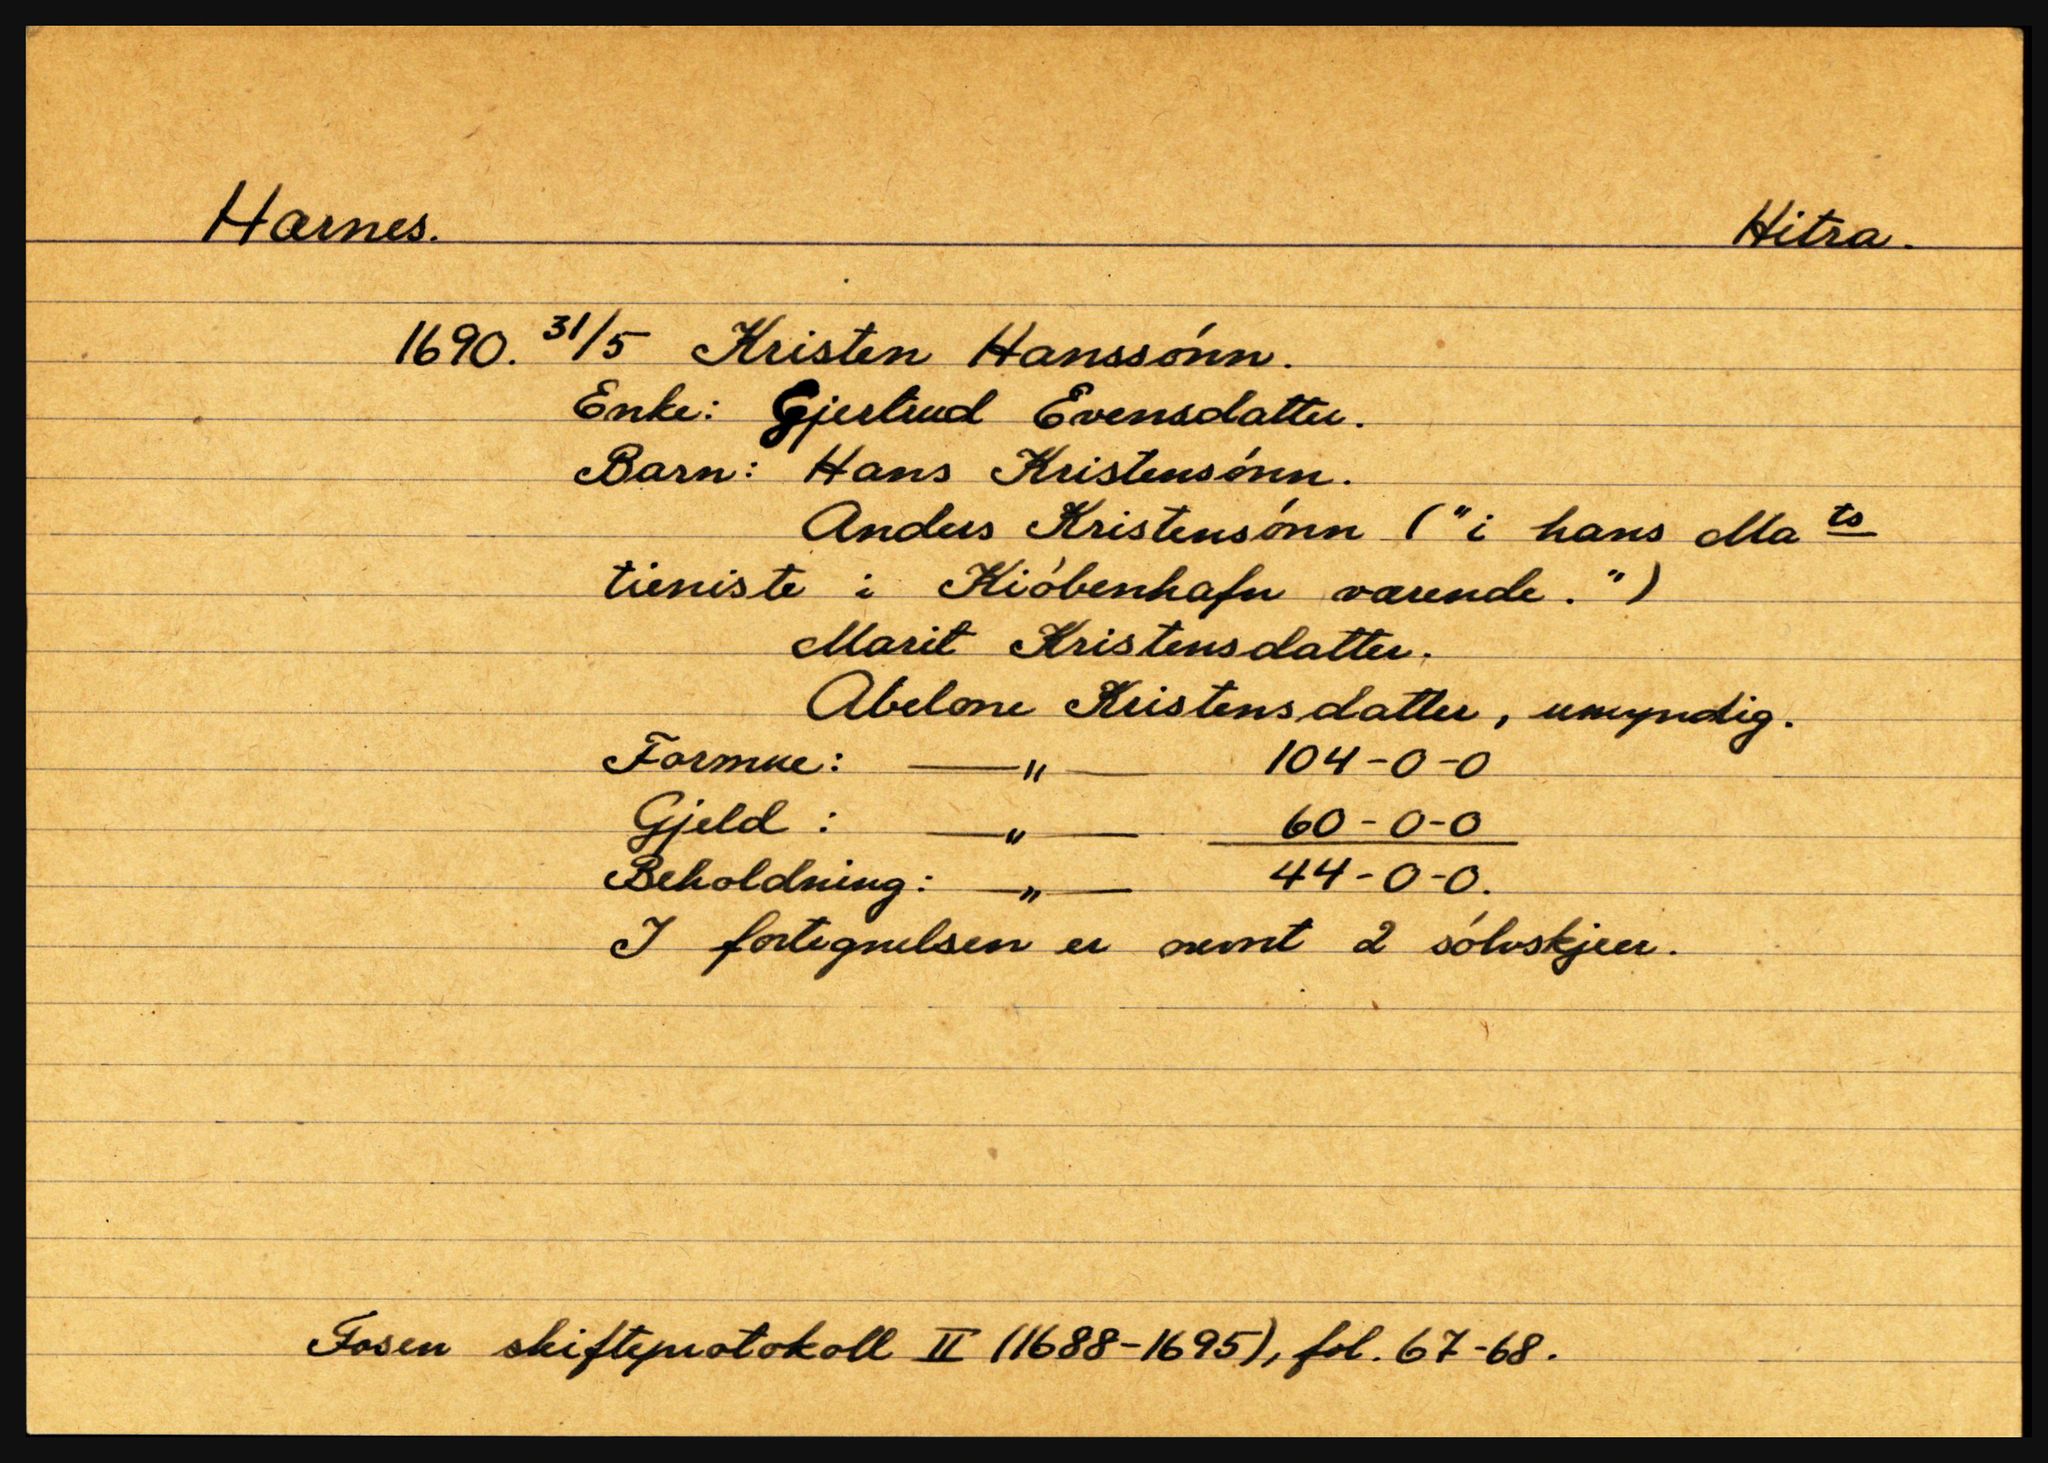 Hærnes. Hitra.
1690. 31/5 Kristen Hanssónn.
Enke: Gjertrud Evensdatter.
Barn: Hans Kristensónn.
Anders Kristensónn ("i hans Ma ts
tieniste i Kióbenhafn værende.")
Marit Kristensdatter.
Abelone Kristensdatter, umyndig.
Formue: —"— 104-0-0
Gjeld: —"— 60-0-0
Beholdning: —"— 44-0-0.
I fortegnelsen er nevnt 2 sólvskjeer.
Fosen skifteprotokoll II (1688-1695), fol. 67-68.